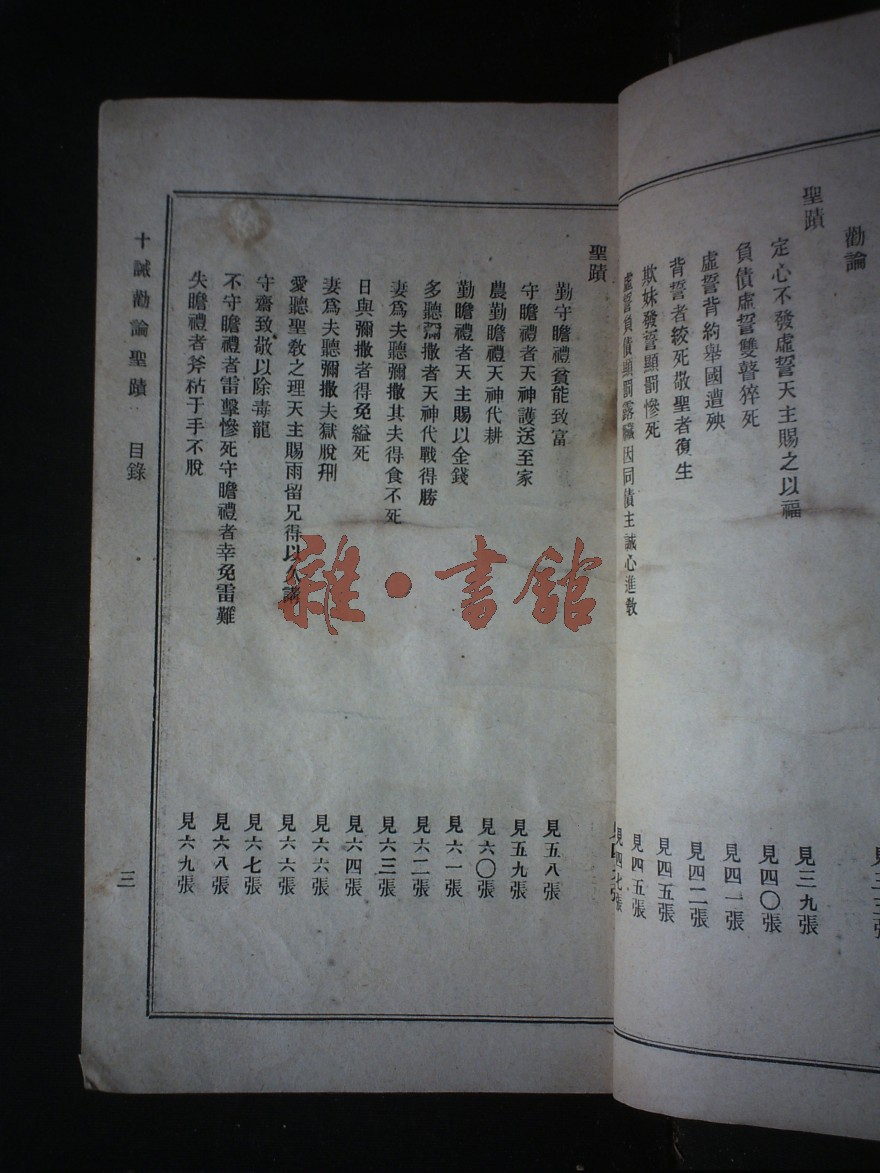 勸論
聖蹟
定心不發虛誓天主賜之以福
見三九張
負債虛誓雙瞽猝死
見四〇張
虛誓背約舉國遭殃
見四一張
背誓者絞死敬聖者復生
見四二張
欺妹發誓顯罰慘死
見四五張
虛誓負債顯罰露臟因同債主誠心進教
見四五張
見四七張
聖蹟
勤守瞻禮貧能致富
見五八張
守瞻禮者天神護送至家
見五九張
農勤瞻禮天神代耕
見六〇張
勤瞻禮者天主賜以金錢
見六一張
多聽彌撒者天神代戰得勝
見六二張
妻爲夫聽彌撒其夫得食不死
見六三張
日與彌撒者得免縊死
見六四張
妻爲夫聽彌撒夫獄脫刑
見六六張
愛聽聖教之理天主賜雨留兄得以久講
見六六張
守齋致敬以除毒龍
見六七張
不守瞻禮者雷擊慘死守瞻禮者幸免雷難
見六八張
失瞻禮者斧粘于手不脫
見六九張
十誡勸論聖蹟 目錄 三
雜·書館